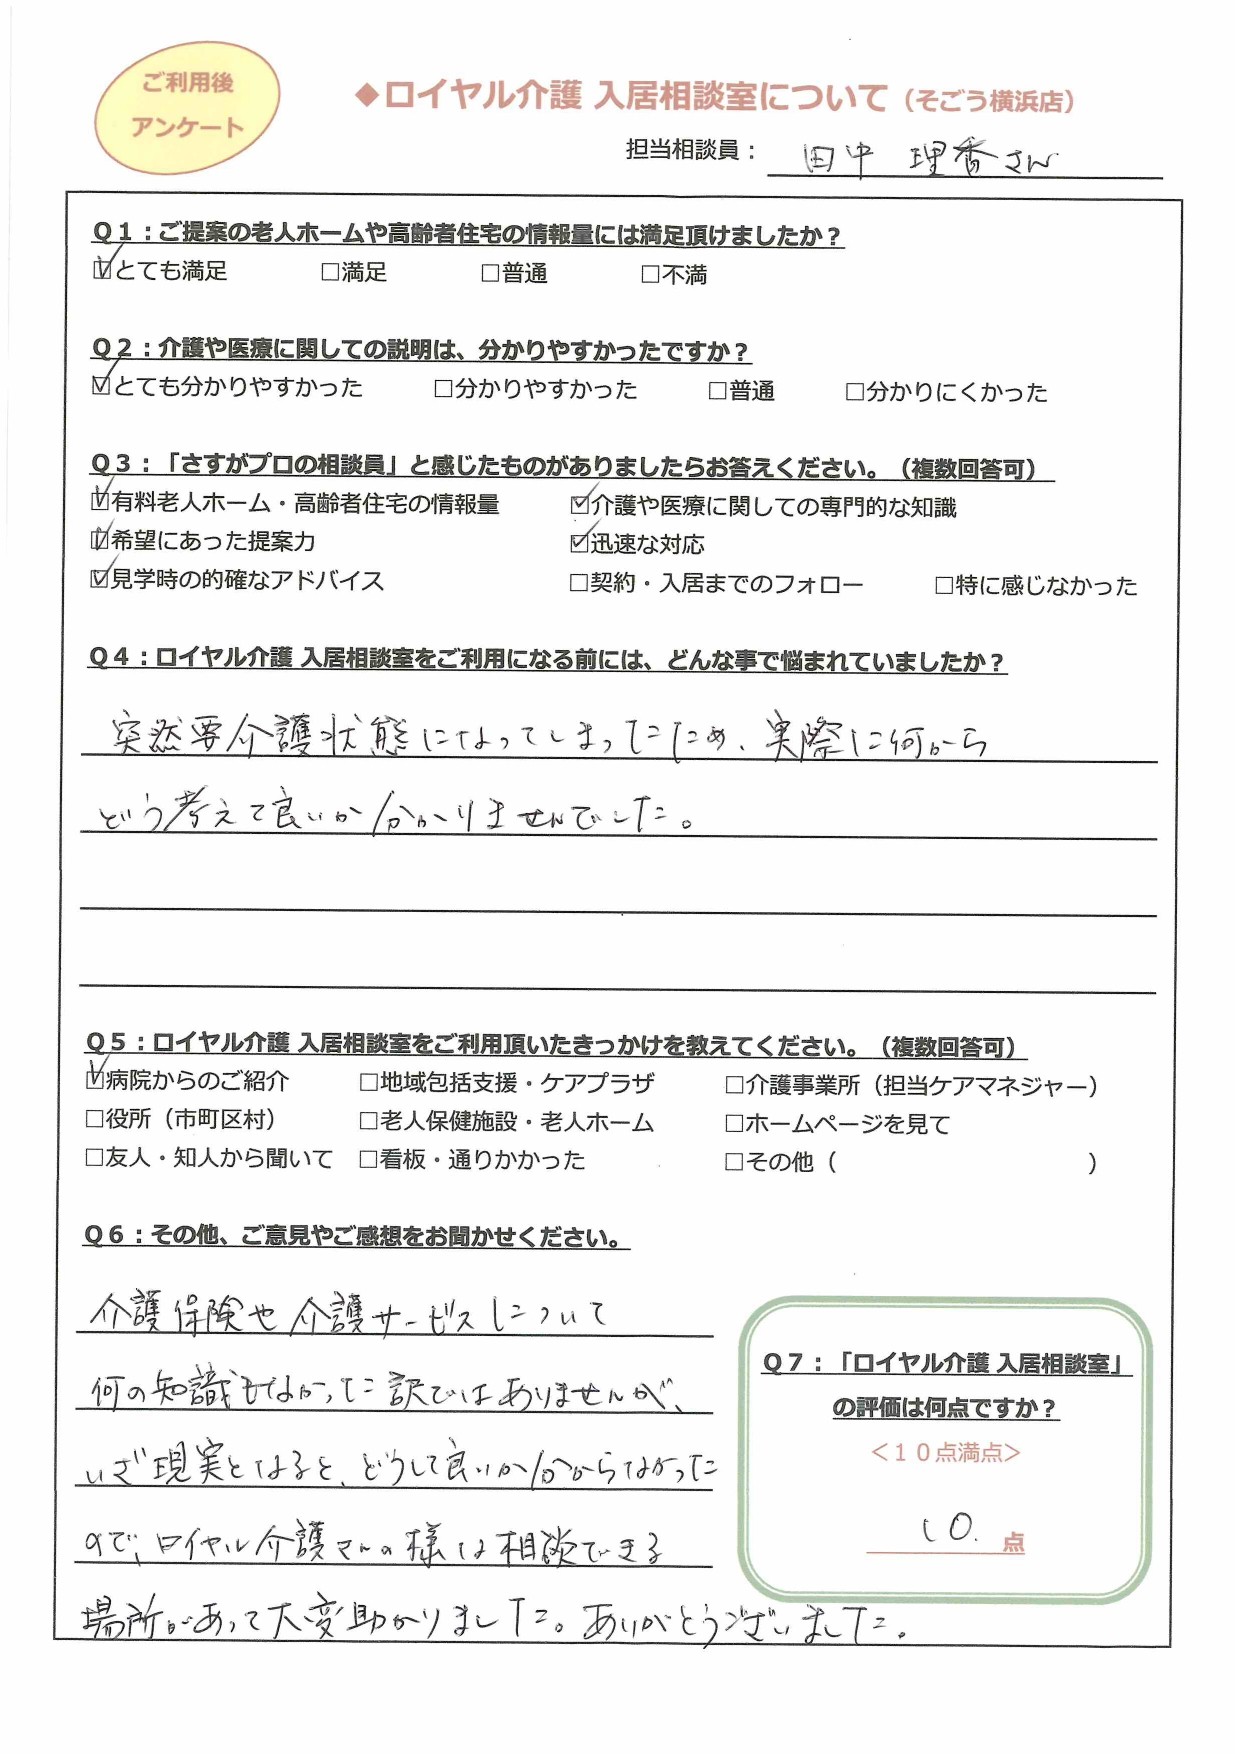 ご利用後
アンケート
◆ロイヤル介護 入居相談室について（そごう横浜店）
担当相談員： 田中 理香さん
Q1：ご提案の老人ホームや高齢者住宅の情報量には満足頂けましたか？
☑とても満足 □満足 □普通 □不満
Q2：介護や医療に関しての説明は、分かりやすかったですか？
☑とても分かりやすかった □分かりやすかった □普通 □分かりにくかった
Q3：「さすがプロの相談員」と感じたものがありましたらお答えください。（複数回答可）
☑有料老人ホーム・高齢者住宅の情報量 ☑介護や医療に関しての専門的な知識
☑希望にあった提案力 ☑迅速な対応
☑見学時の的確なアドバイス □契約・入居までのフォロー □特に感じなかった
Q4：ロイヤル介護 入居相談室をご利用になる前には、どんな事で悩まれていましたか？
突然要介護状態になってしまったため、実際に何から
どう考えて良いか分かりませんでした。
Q5：ロイヤル介護 入居相談室をご利用頂いたきっかけを教えてください。（複数回答可）
☑病院からのご紹介 □地域包括支援・ケアプラザ □介護事業所（担当ケアマネジャー）
□役所（市町区村） □老人保健施設・老人ホーム □ホームページを見て
□友人・知人から聞いて □看板・通りかかった □その他（ ）
Q6：その他、ご意見やご感想をお聞かせください。
介護保険や介護サービスについて
何の知識もなかった訳ではありませんが、
いざ現実となると、どうして良いか分からなかった
ので、ロイヤル介護さんの様な相談できる
場所があって大変助かりました。ありがとうございました。
Q7：「ロイヤル介護 入居相談室」
の評価は何点ですか？
＜１０点満点＞
10. 点